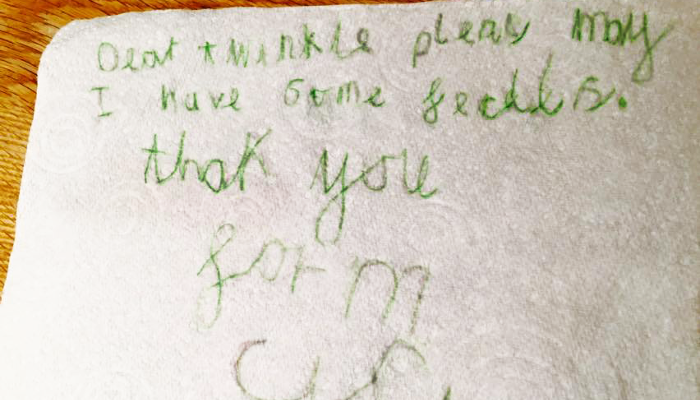 Dear twinkle pleas may
I have some
thak you
for m